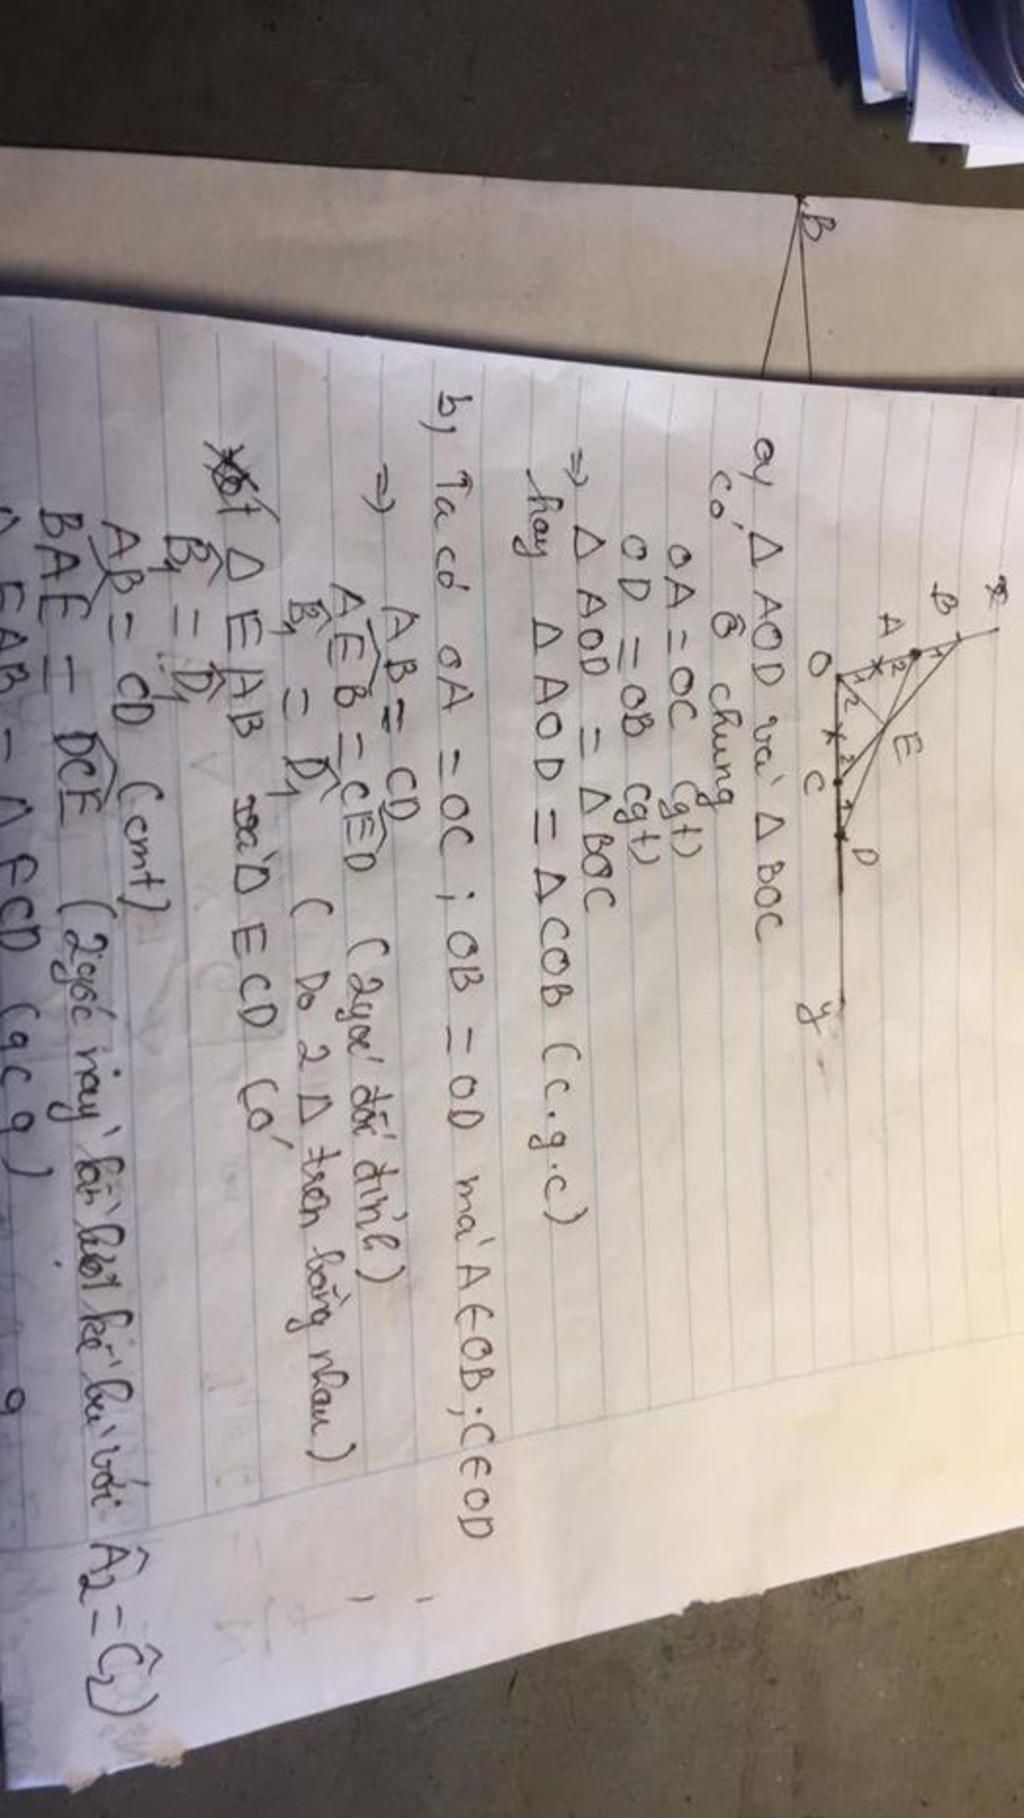 B
x
B
1
A
2
E
O
1
2
2
1
C
D
y
a, Δ AOD và Δ BOC
có Ô chung
OA = OC (gt)
OD = OB (gt)
=> Δ AOD = Δ BOC
hay Δ AOD = Δ COB (c.g.c)
b, Ta có OA = OC ; OB = OD mà A ∈ OB ; C ∈ OD
=> AB = CD
AÊB = CÊD (2 góc đối đỉnh)
B̂₁ = D̂₁ ( Do 2 Δ trên bằng nhau )
Xét Δ EAB và Δ ECD có
B̂₁ = D̂₁
AB = CD (cmt)
BÂE = DĈE (2 góc này lần lượt kề bù với Â₂ = Ĉ₂)
Δ EAB = Δ ECD (g c g)